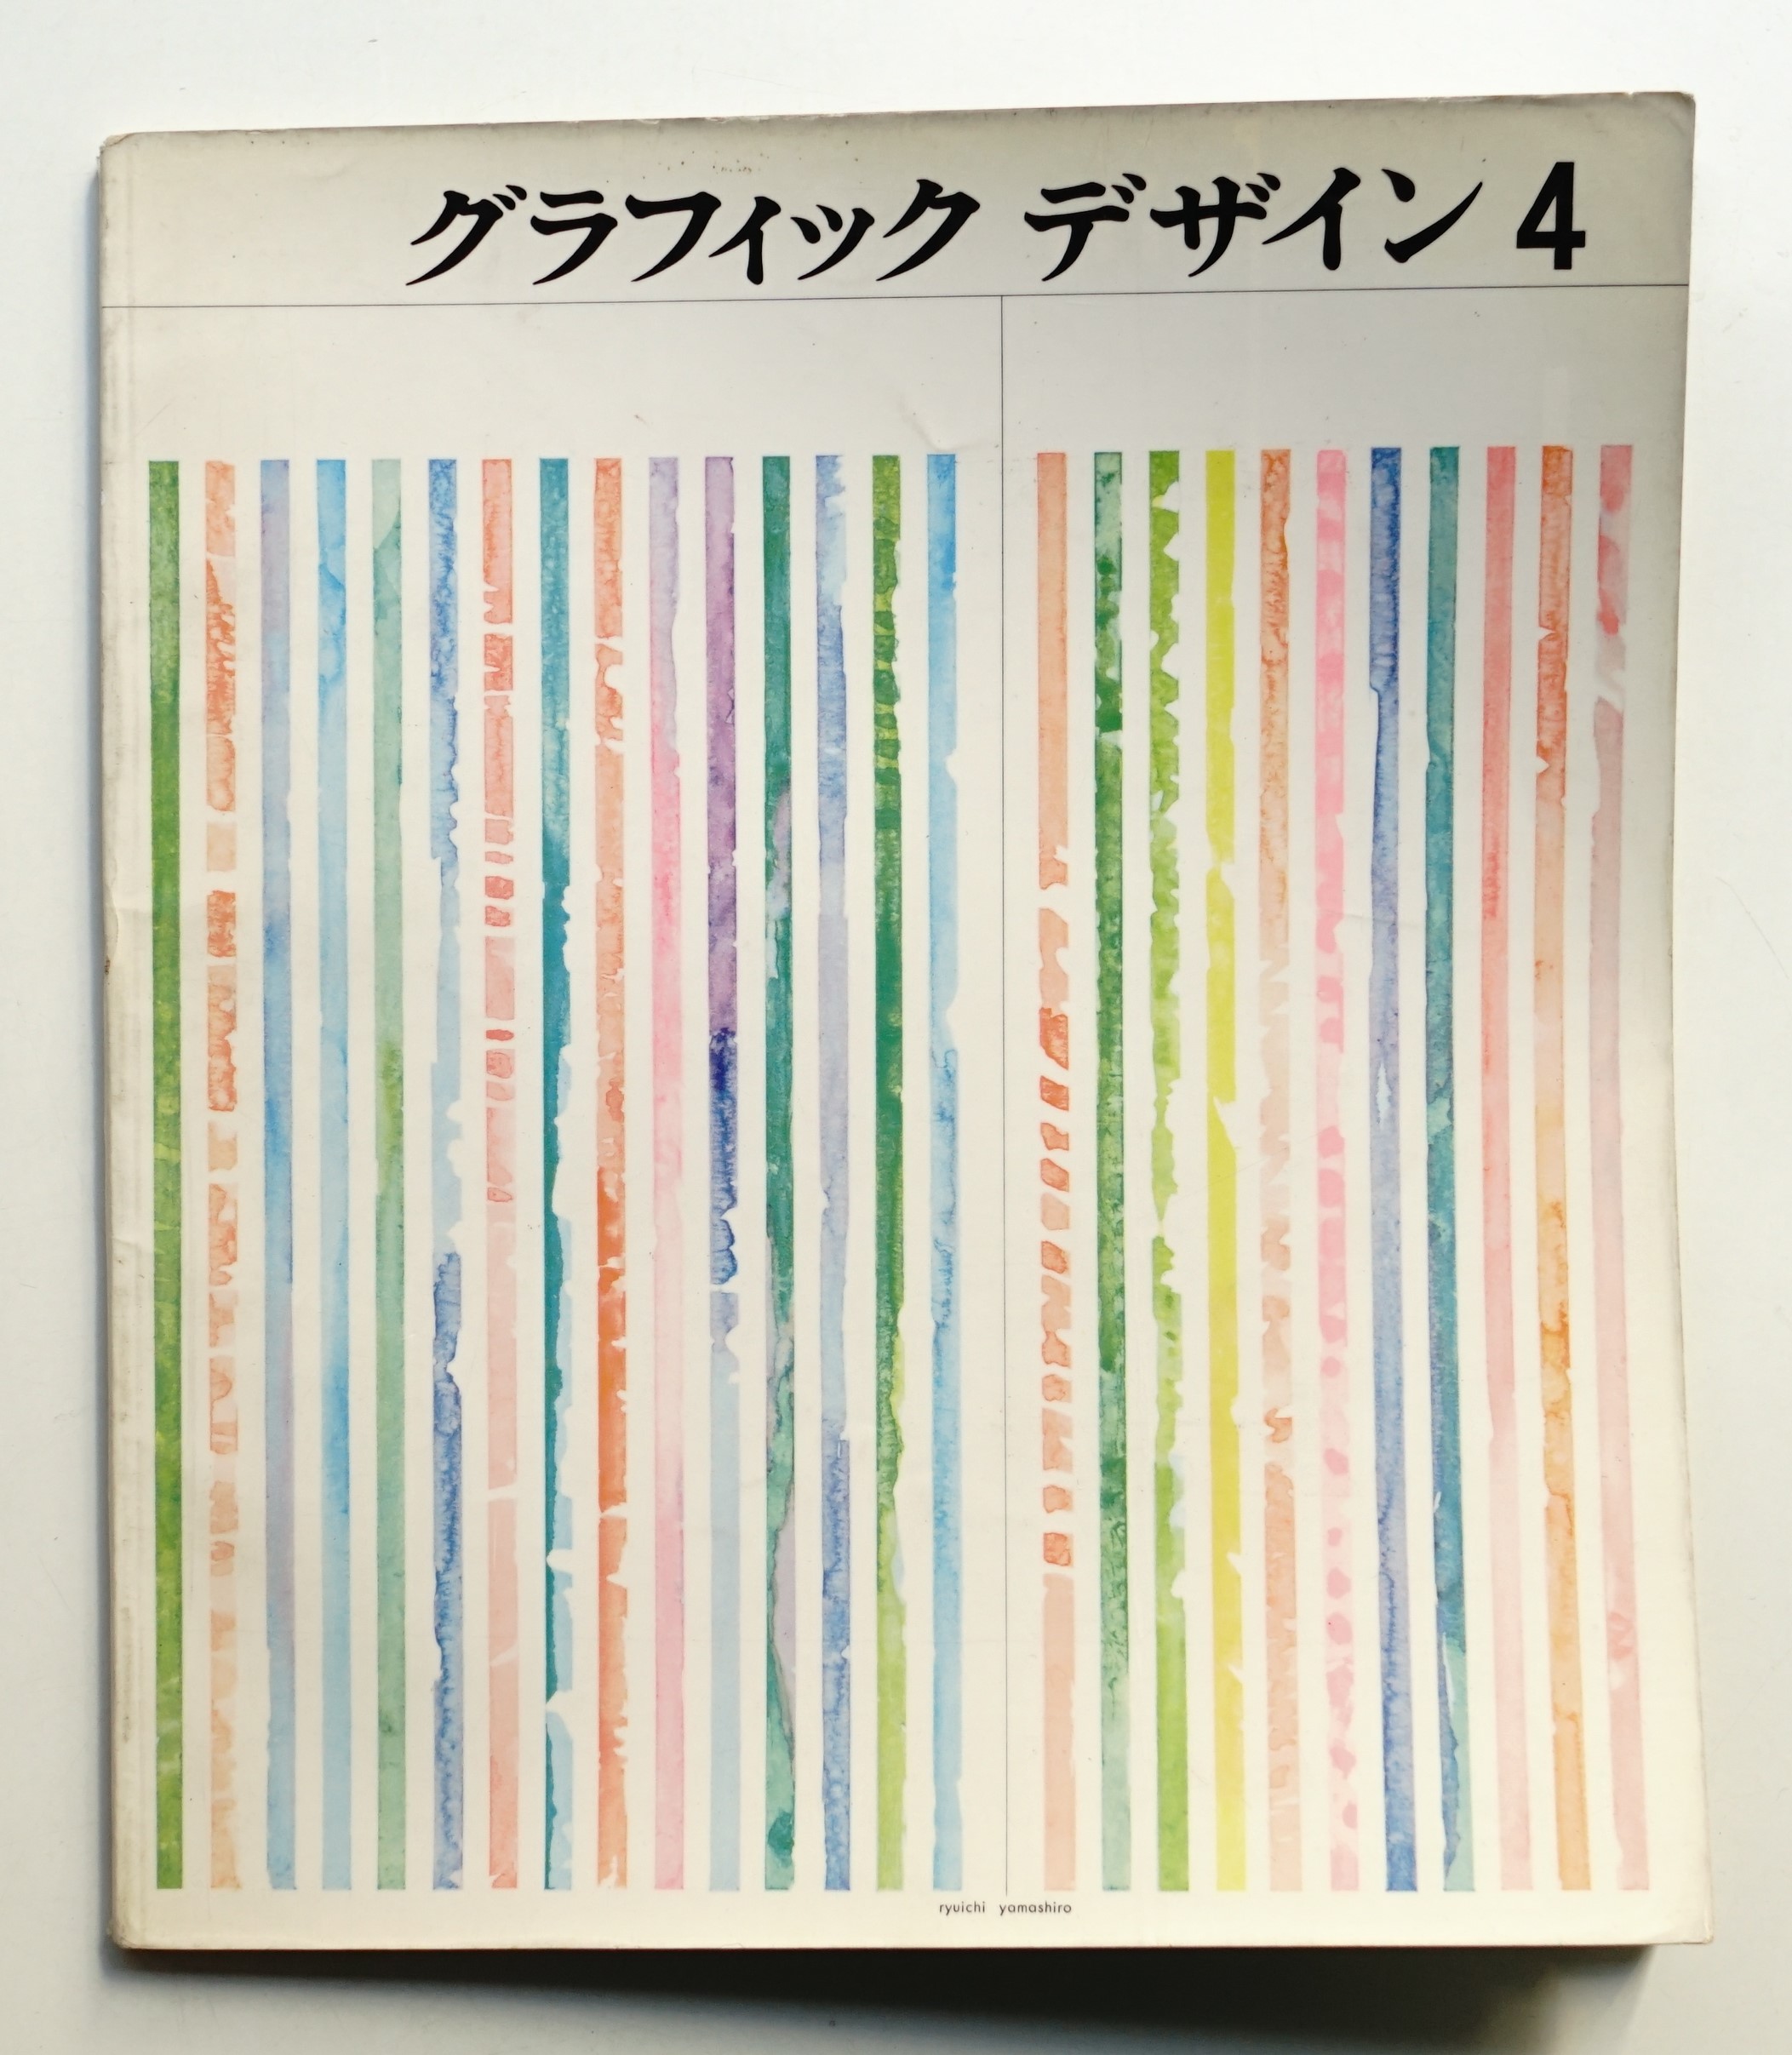 グラフィック デザイン 4
ryuichi yamashiro